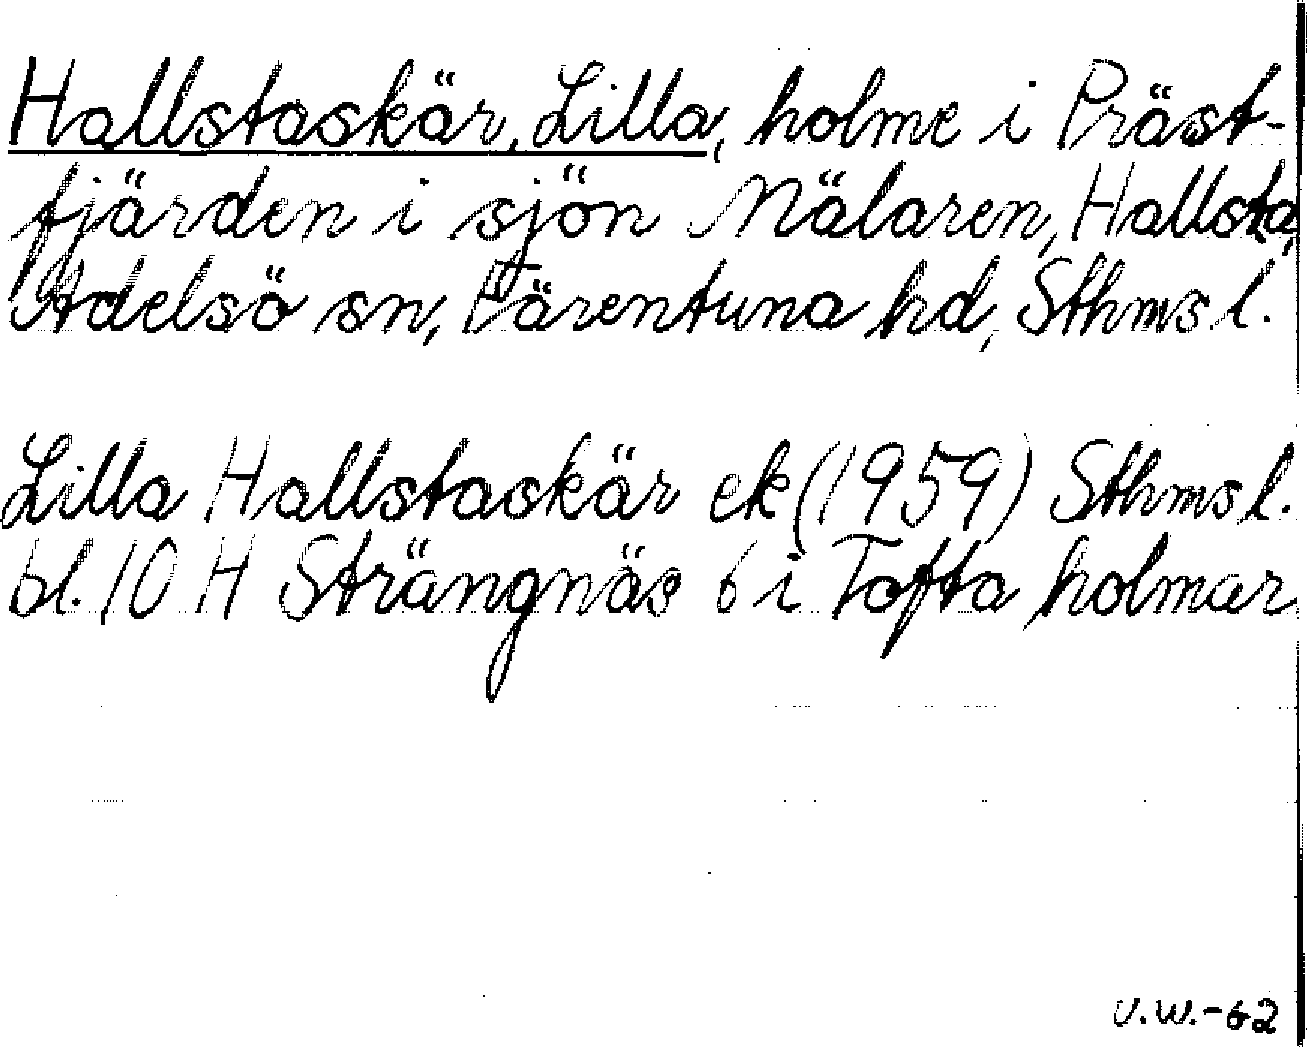 Hallstaskär, Lilla, holme i Präst-
fjärden i sjön Mälaren, Hallsta,
Adelsö sn, Färentuna hd, Sthms l.
Lilla Hallstaskär ek (1959) Sthms l.
bl. 10 H Strängnäs 6 i Tofta holmar
V.W.-62